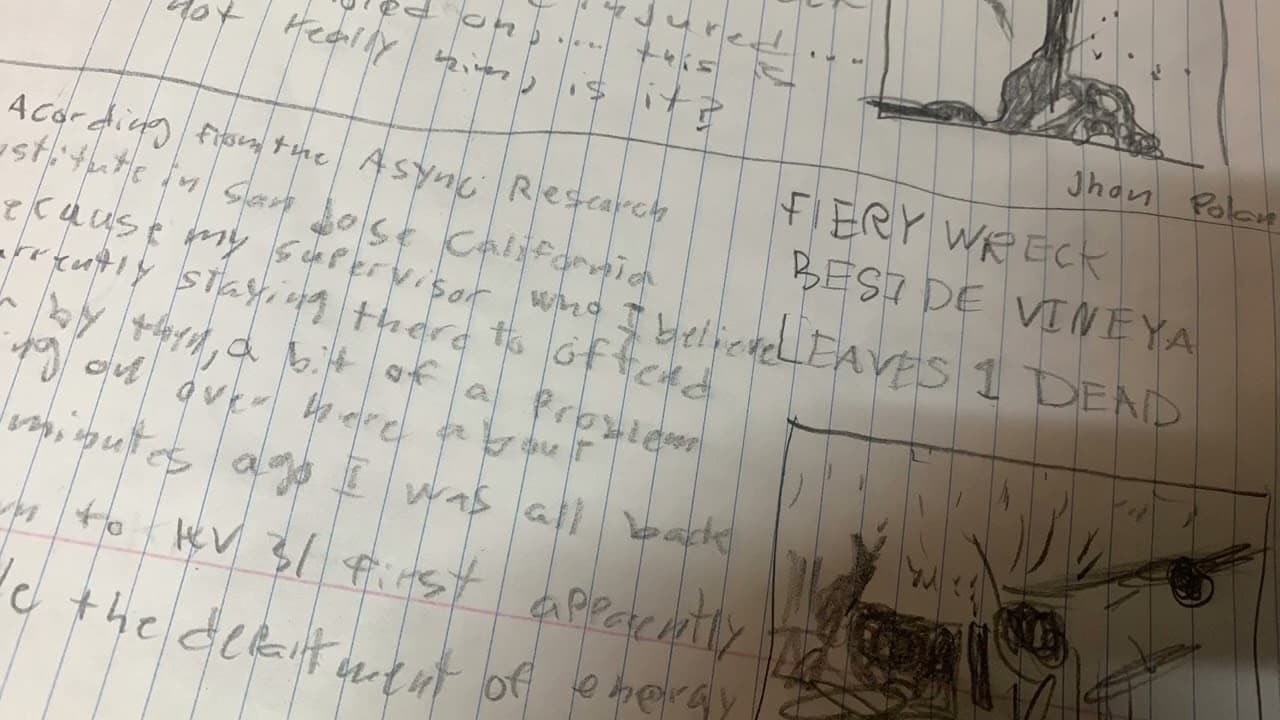 on, ... this is ...
not really him, is it?
Jhon Polan
Acording from the Async Research
stitute in San Jose California
ecause my supervisor who I believe
rrently staying there to offend
by then, a bit of a problem
ng on over here about
minutes ago I was all back
to KV 31 first appecently
the debaitment of energy
FIERY WRECK
BESIDE VINEYA
LEAVES 1 DEAD